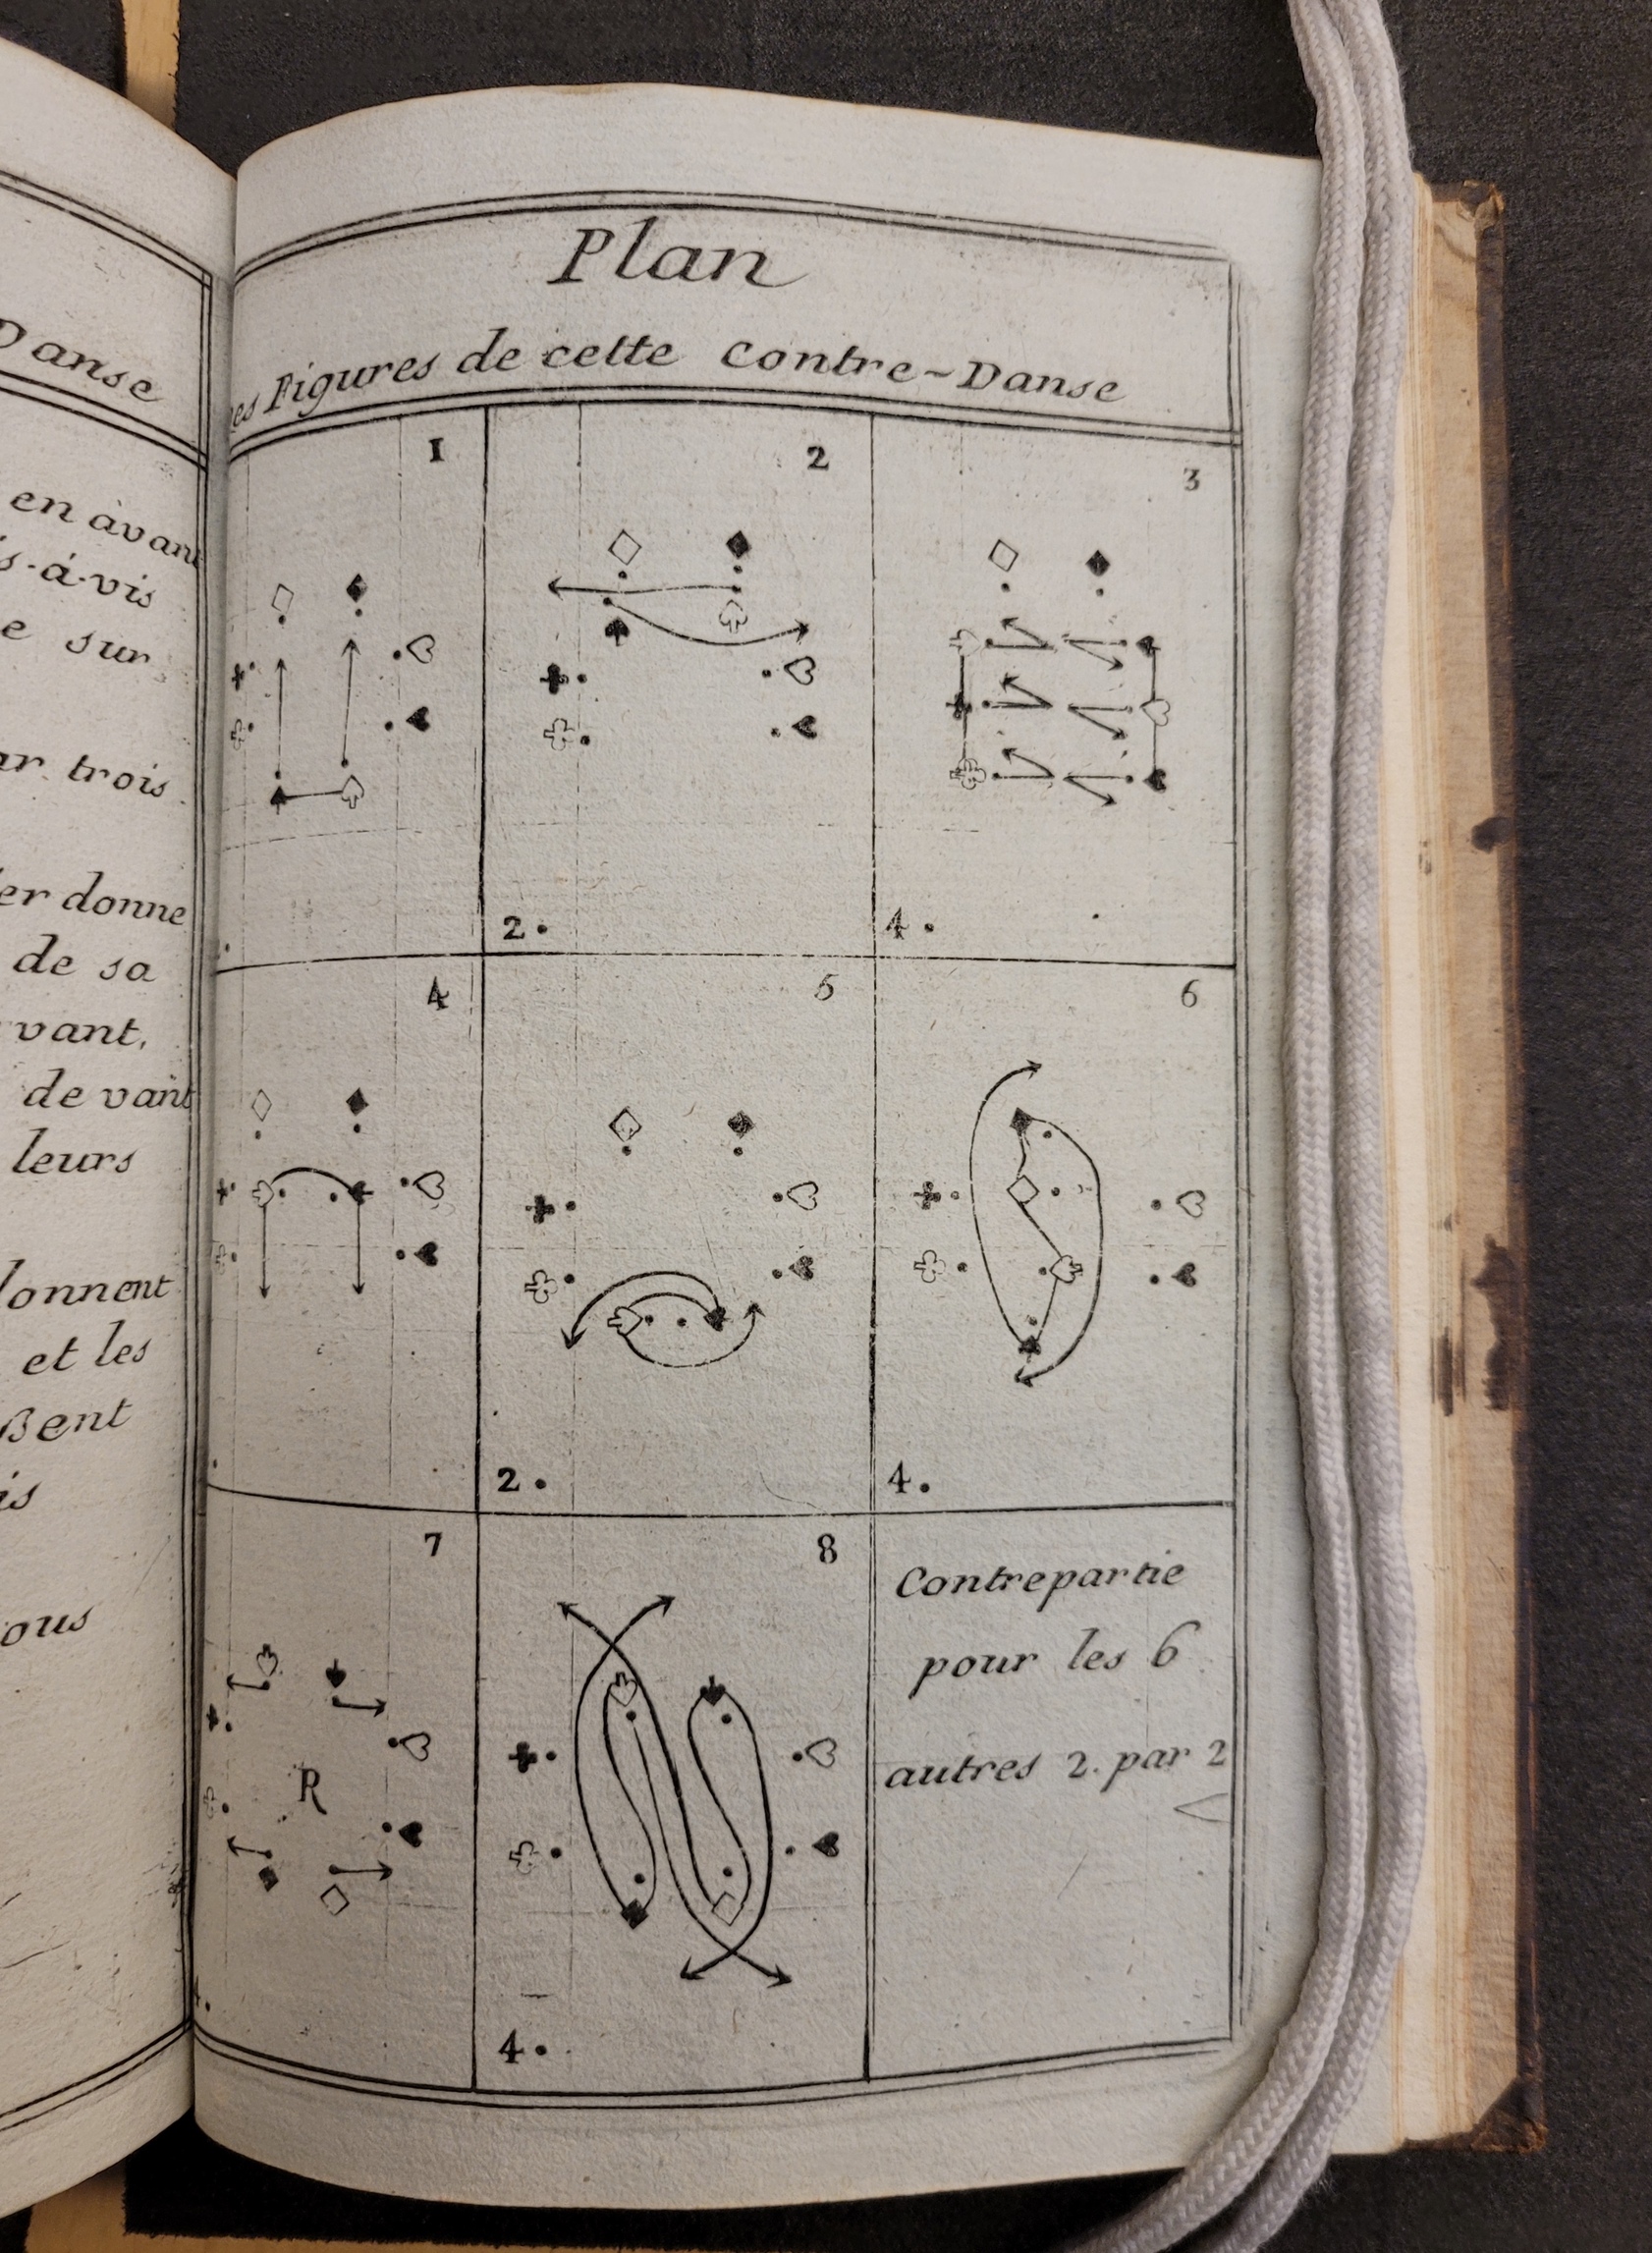 Danse
en àvant
vis
sur
trois
donne
de sa
vant,
de vant
leurs
donnent
et les
ßent
Plan
Figures de cette Contre-Danse
1
2
3
2.
4.
4
5
6
2.
4.
7
8
R
4.
Contrepartie
pour les 6
autres 2. par 2